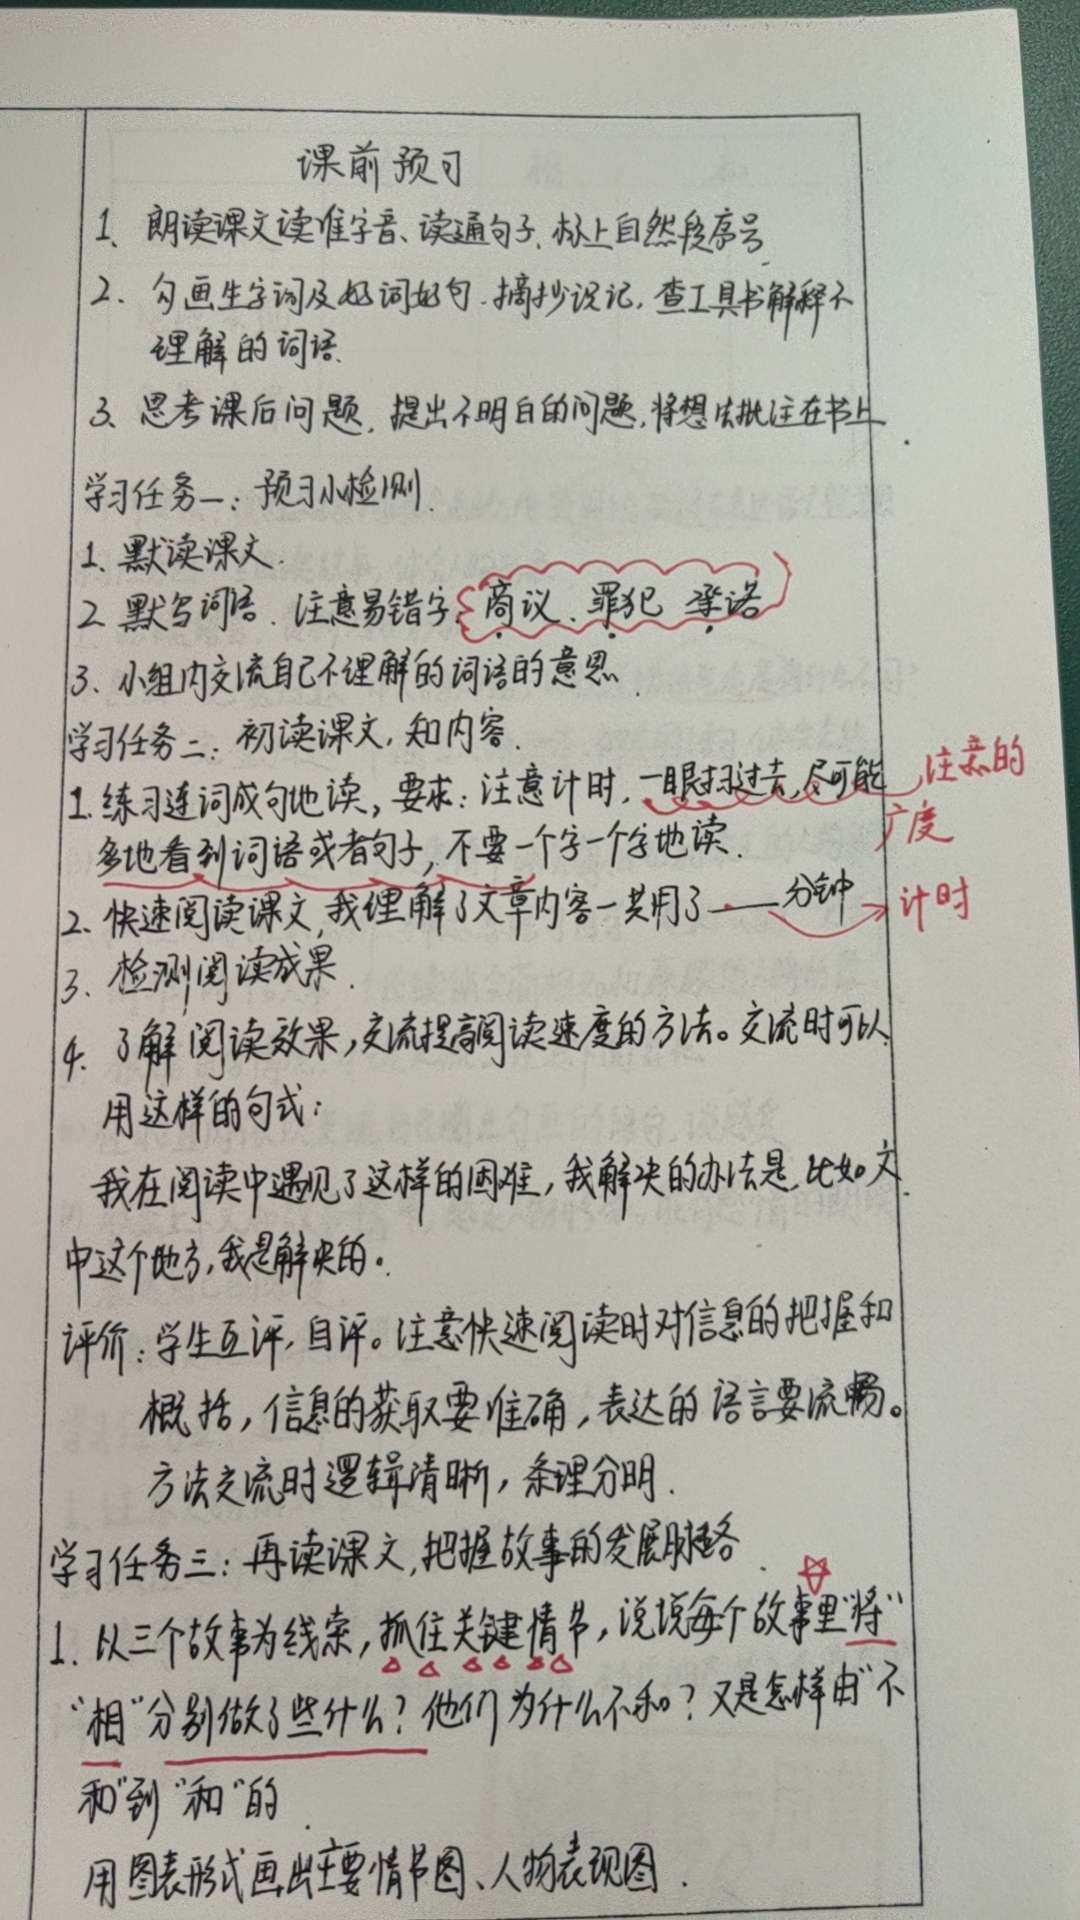 课前预习
1、朗读课文读准字音、读通句子、标上自然段序号
2、勾画生字词及好词好句.摘抄识记,查工具书解释不
理解的词语.
3、思考课后问题,提出不明白的问题,将想法批注在书上.
学习任务一:预习小检测.
1.默读课文.
2 默写词语.注意易错字:商议、罪犯 承诺
3、小组内交流自己不理解的词语的意思.
学习任务二:初读课文,知内容.
1.练习连词成句地读,要求:注意计时,一眼扫过去,尽可能 注意的
多地看到词语或者句子,不要一个字一个字地读. 广度
2、快速阅读课文,我理解了文章内容一共用了——分钟 计时
3、检测阅读成果.
4.了解阅读效果,交流提高阅读速度的方法。交流时可以
用这样的句式:
我在阅读中遇见了这样的困难,我解决的办法是,比如文
中这个地方,我是解决的。
评价:学生互评,自评。注意快速阅读时对信息的把握和
概括,信息的获取要准确,表达的语言要流畅。
方法交流时逻辑清晰,条理分明.
学习任务三:再读课文,把握故事的发展脉络.
1.以三个故事为线索,抓住关键情节,说说每个故事里“将”
“相”分别做了些什么?他们为什么不和?又是怎样由“不
和”到“和”的.
用图表形式画出主要情节图、人物表现图.